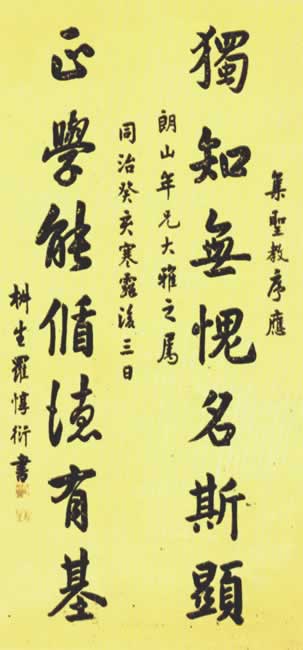 集聖教序應
獨知無愧名斯顯
朗山年兄大雅之属
同治癸亥寒露後三日
正學能循德有基
椒生羅惇衍書